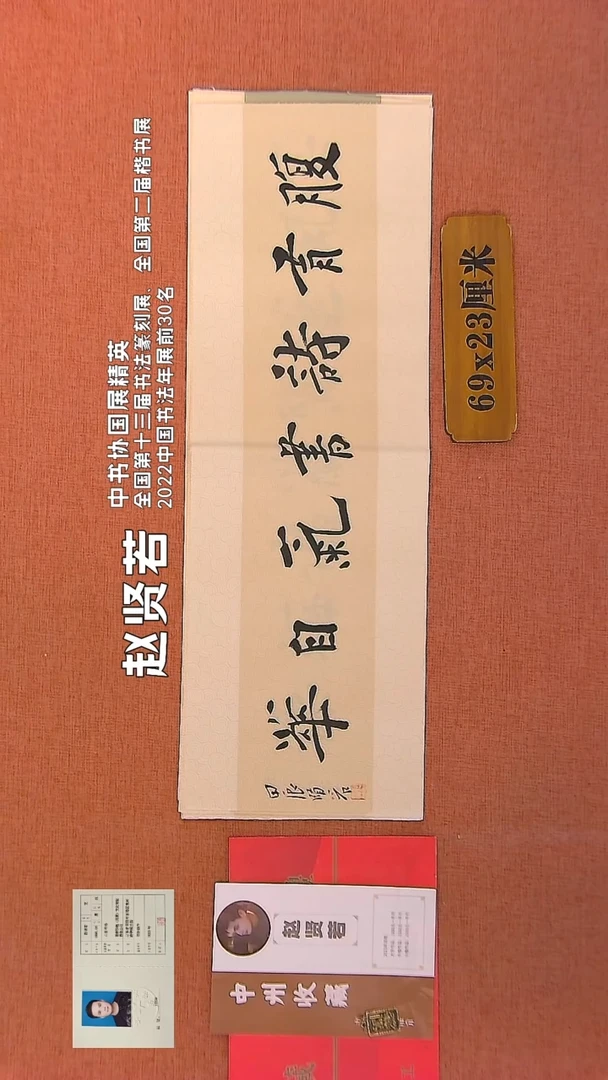 赵贤若
中书协国展精英
全国第十三届书法篆刻展、全国第二届楷书展
2022中国书法年展前30名
腹有詩書氣自華
69x23厘米
赵贤若
中州收藏